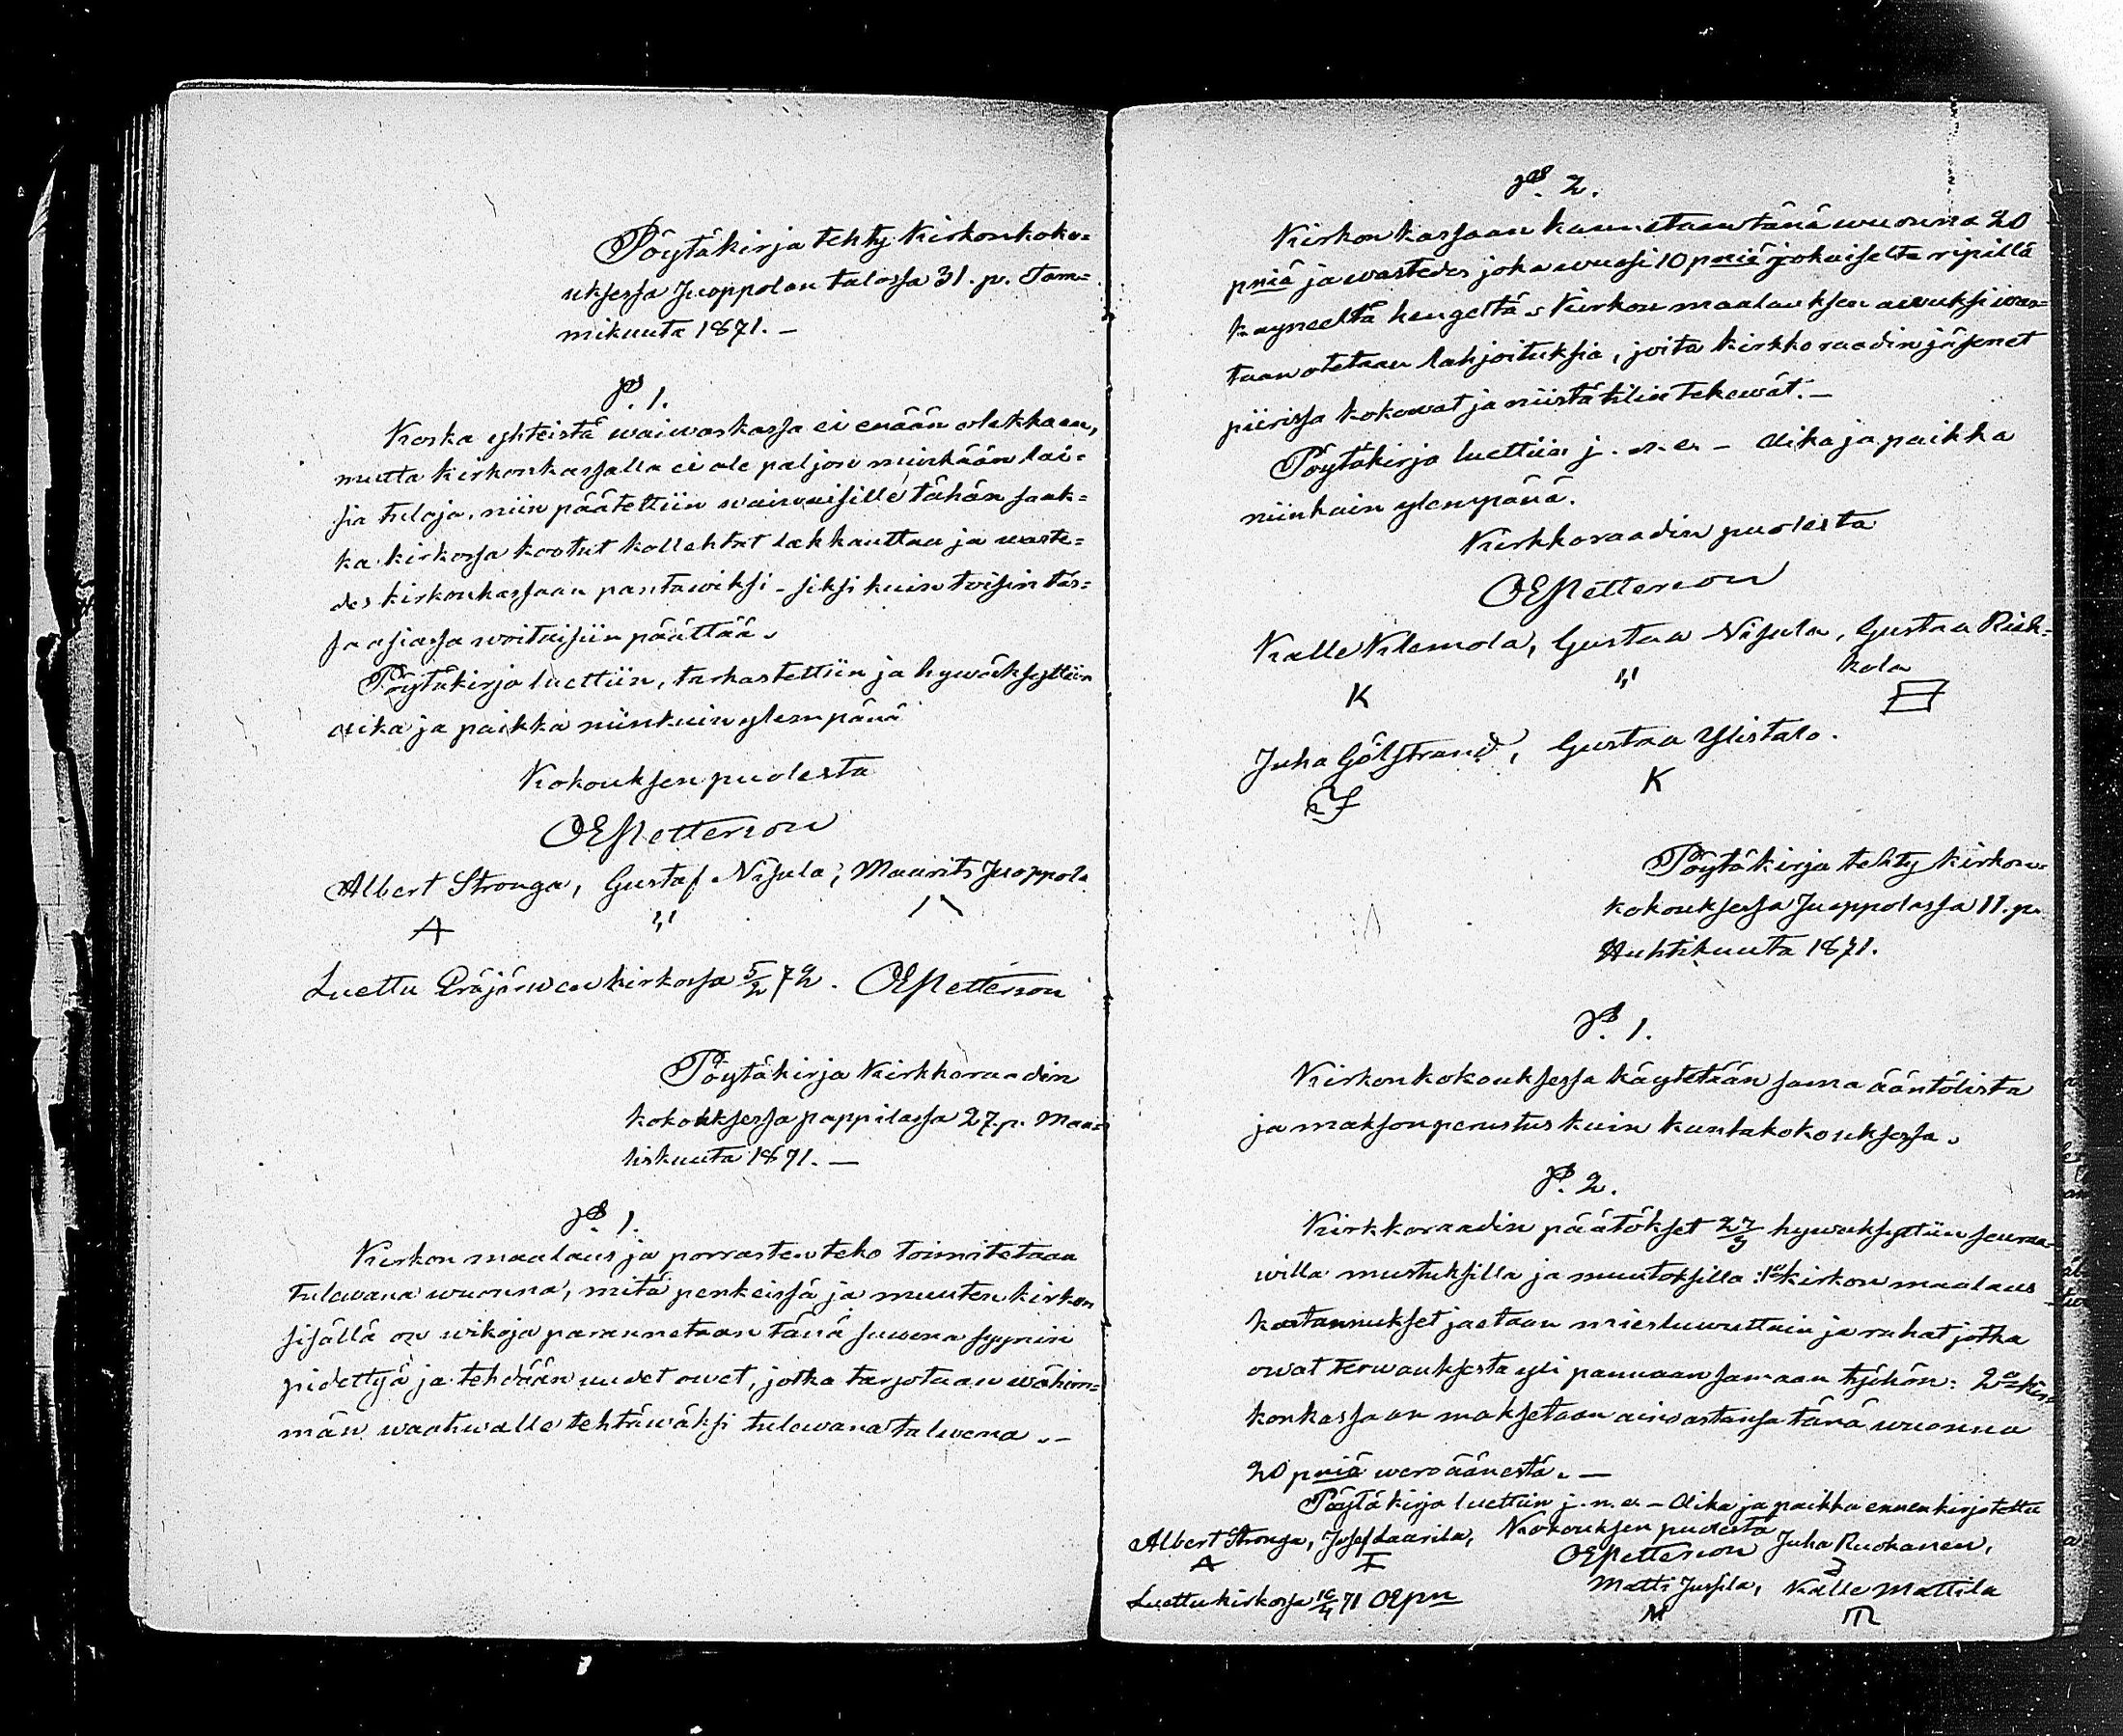 Pöytäkirja tehty Kirkonkoko=
uksessa Juoppolan talossa 31. p. Tam=
mikuuta 1871. –
§. 1.
Koska yhteistä waiwaskassa ei enään olekkaan,
mutta kirkonkassalla ei ole paljon minkään lai=
sia tuloja, niin päätettiin waiwaisille tähän saak=
ka kirkossa kootut kollehtat lakkauttaa ja waste=
des kirkonkassaan pantawiksi – siksi kuin toisin täs=
sa asiassa woitaisiin päättää.
Pöytäkirja luettiin, tarkastettiin ja hywäksyttiin
aika ja paikka niinkuin ylempänä
Kokouksen puolesta
OEPetterson
Albert Stronga, Gustaf Nisula, Maurits Juoppola
A " /\
Luettu Eräjärwen kirkossa 5/2 72. OEPetterson
Pöytäkirja Kirkkoraadin
kokouksessa pappilassa 27. p. Maa=
liskuuta 1871. –
§. 1.
Kirkon maalaus ja porrasten teko toimitetaan
tulewana wuonna, mitä penkeissä ja muuten kirkon
sisällä on wikoja parannetaan tänä suwena syynin
pidettyä ja tehdään uudet owet, jotka tarjotaan wähim=
män waatiwalle tehtäwäksi tulewana talwena. –
§. 2.
Kirkon kassaan kannetaan tänä wuonna 20
pniä ja wastedes joka wuosi 10 pniä jokaiselta ripillä
kayneeltä hengeltä. Kirkon maalauksen awuksi was=
taan otetaan lahjoituksia, joita kirkkoraadin jäsenet
piirissa kokowat ja niistä tilin tekewät. –
Pöytäkirja luettiin j. n. e. – Aika ja paikka
niinkuin ylempänä.
Kirkkoraadin puolesta
OEPetterson
Kalle Klemola, Gustaa Nisula, Gustaa Rick=
kola
K "
Juha Gölstrand, Gustaa Ylistalo.
K
Pöytäkirja tehty kirkon=
kokouksessa Juoppolassa 11. p.
Huhtikuuta 1871.
§. 1.
Kirkonkokouksessa käytetään sama ääntölista
ja maksonperustus kuin kuntakokouksessa.
§. 2.
Kirkkoraadin päätökset 27/3 hywaksyttiin seuraa=
willa mustuksilla ja muutoksilla: 1o kirkon maalaus
kostannukset jaetaan miesluwuttain ja rahat jotka
owat terwauksesta yli pannaan samaan työhön: 2o kir=
konkassaan maksetaan ainoastansa tänä wuonna
20 pniä weroäänestä. –
Pöytäkirja luettiin j. n. e. – Aika ja paikka ennen kirjotettu
Kokouksen puolesta
Albert Stronga, Josef Laurila, OEPetterson Juha Ruokanen,
A I
Matti Jussila, Kalle Mattila
M
Luettu kirkossa 16/4 71 OEPn